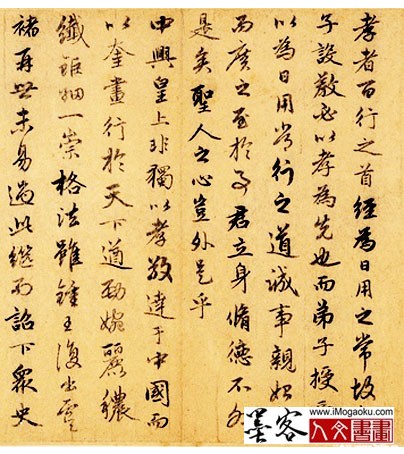 孝者百行之首經為日用之常故
子設教必以孝為先也而弟子授
以為日用常行之道誠事親始
而廣之至於事君立身脩德不外
是矣聖人之心豈外是乎
中興皇上非獨以孝敬達于中國而
以奎畫行於天下遒勁婉麗穠
纖鉅細一崇格法雖鍾王復出虞
褚再世未易過此繼而詔下眾史
墨客
www.iMogaoku.com
人文書畫